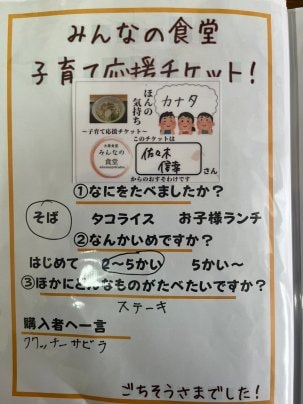 みんなの食堂
子育て応援チケット!
ほんの気持ち
カナタ
〜子育て応援チケット〜
みんなの食堂
このチケットは
佐々木
さん
からのおすそわけです
①なにをたべましたか?
そば タコライス お子様ランチ
②なんかいめですか?
はじめて 2〜5かい 5かい〜
③ほかにどんなものがたべたいですか?
ステーキ
購入者へ一言
ごちそうさまでした!